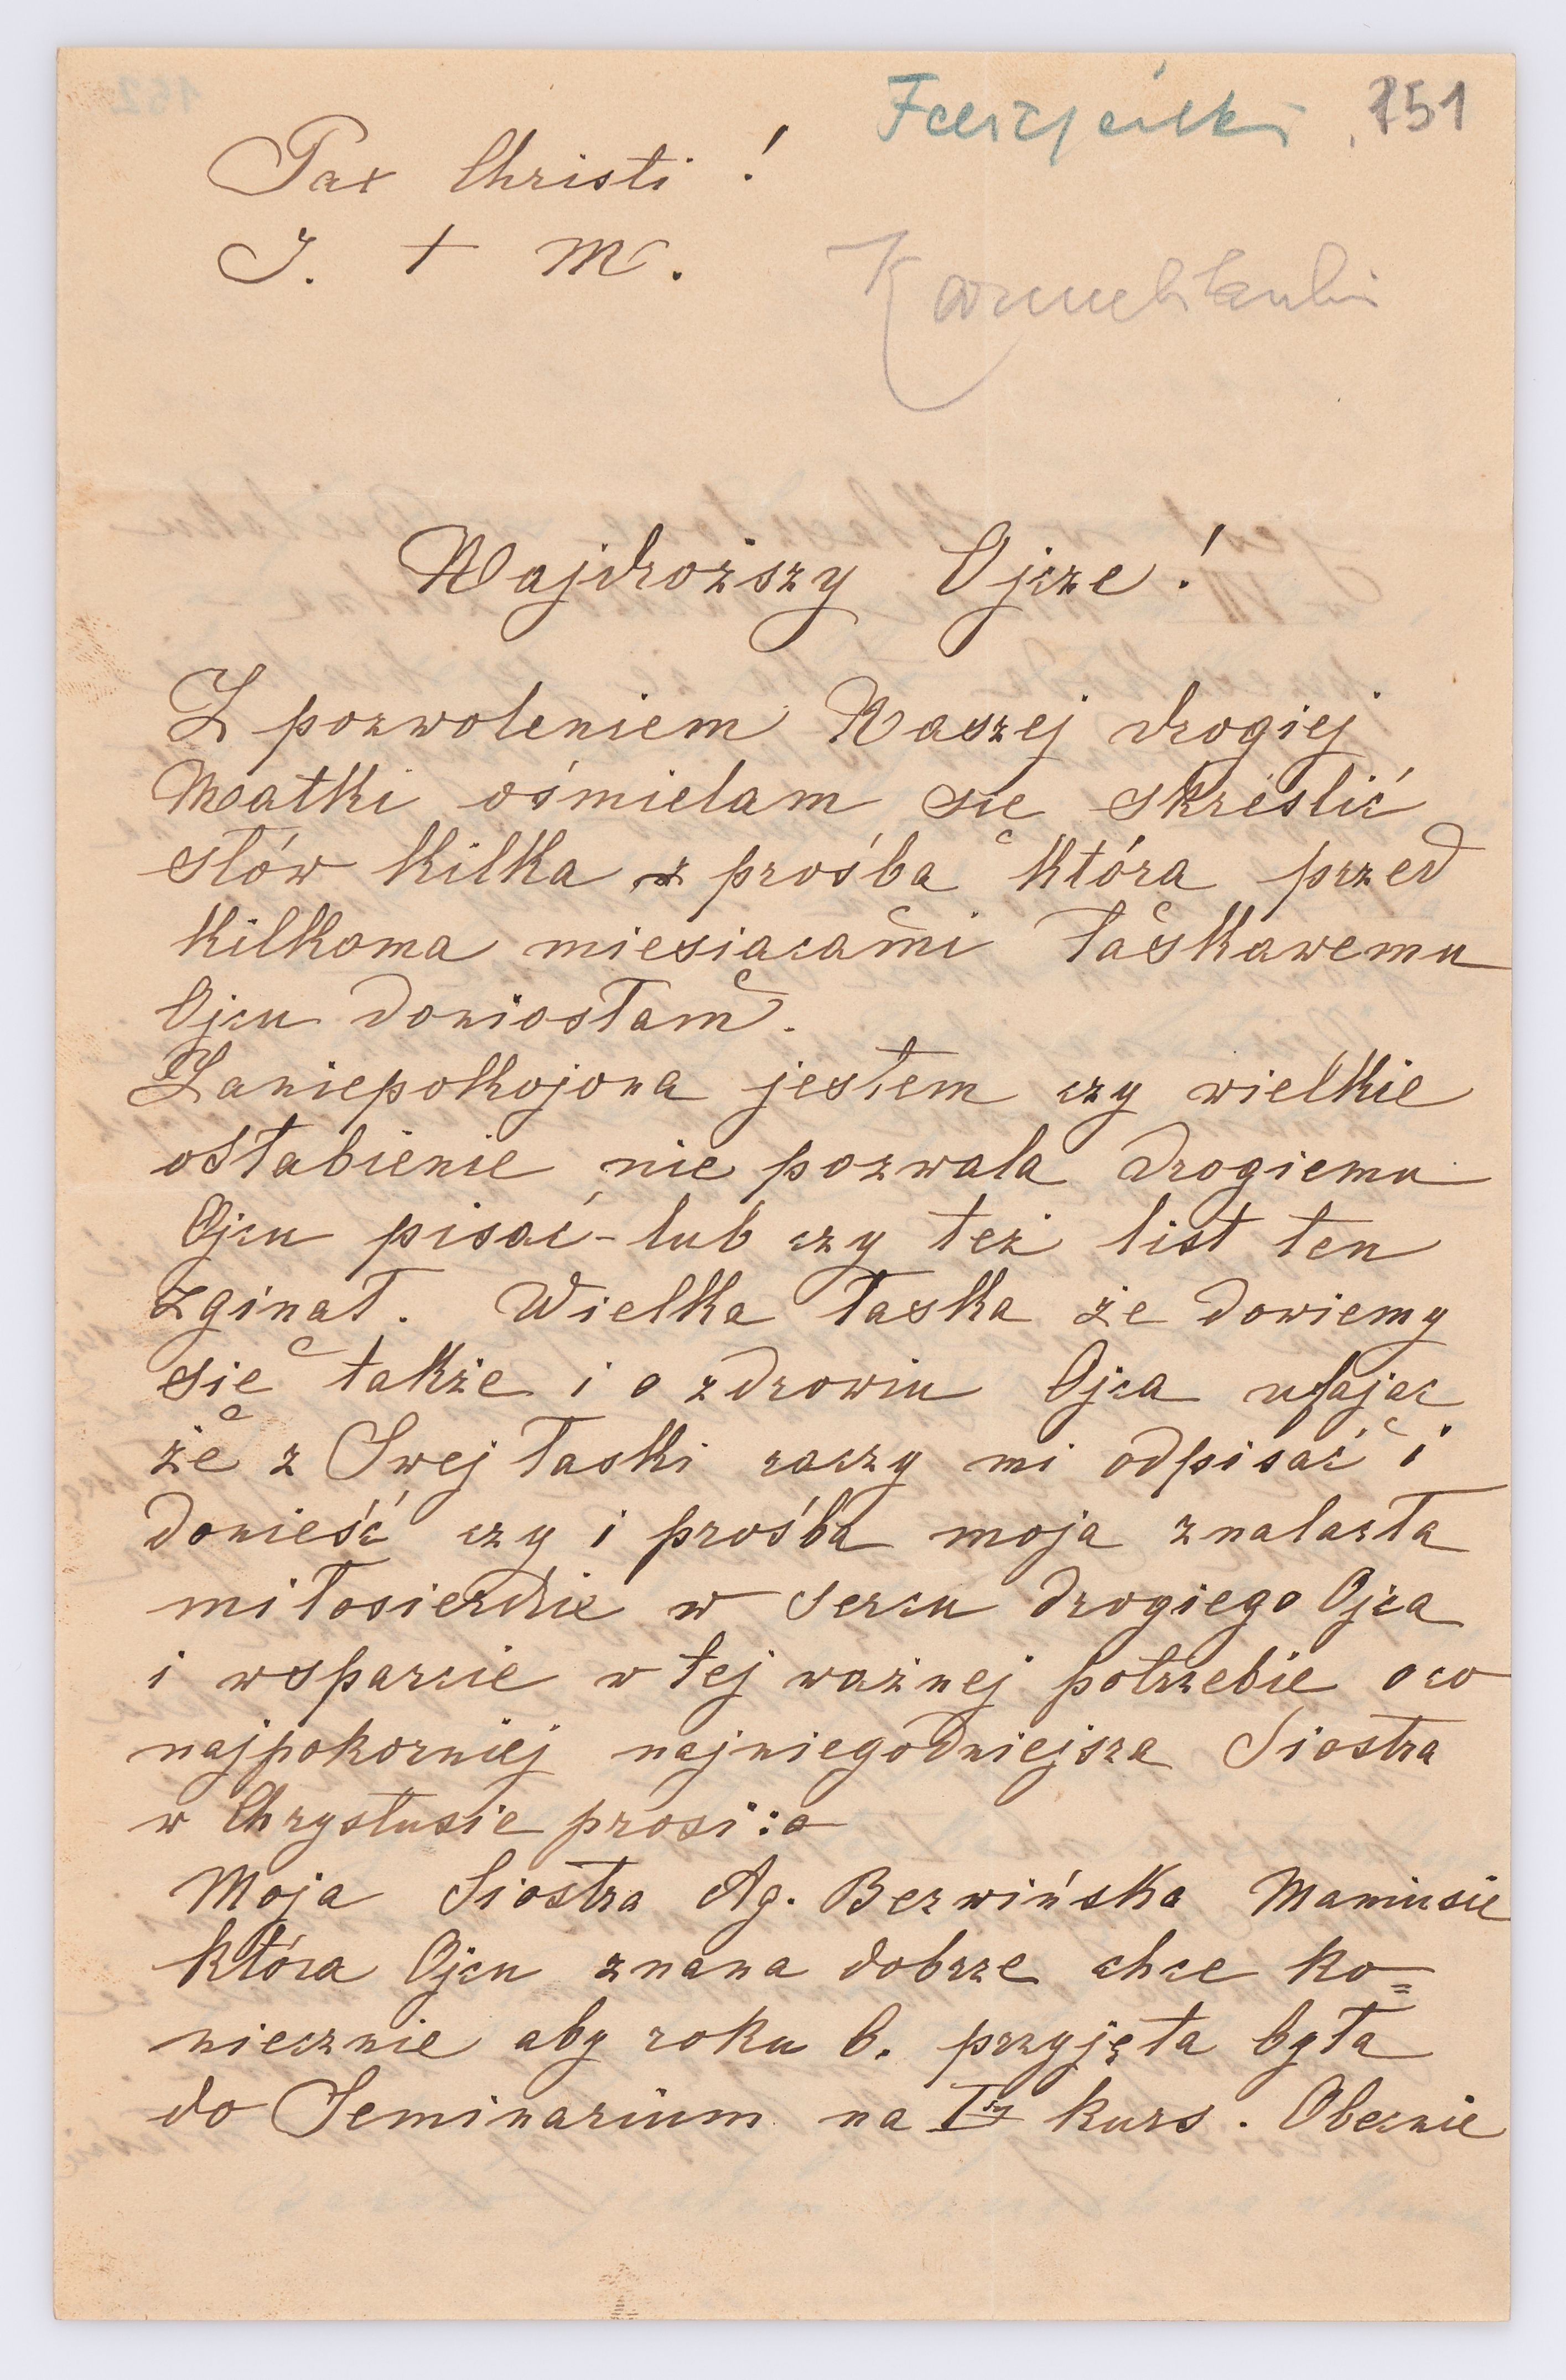 Felicjanki 151
Pax Christi!
J. + M.
Karmelitanki
Najdroższy Ojcze!
Z pozwoleniem Naszej drogiej
Matki ośmielam się skreślić
słów kilka z prośbą którą przed
kilkoma miesiącami łaskawemu
Ojcu doniosłam.
Zaniepokojona jestem czy wielkie
osłabienie nie pozwala drogiemu
Ojcu pisać - lub czy też list ten
zginął. Wielka łaska że dowiemy
się także i o zdrowiu Ojca ufając
że z Swej łaski raczy mi odpisać i
donieść czy i prośba moja znalazła
miłosierdzie w sercu drogiego Ojca
i wsparcie w tej ważnej potrzebie o co
najpokorniej najniegodniejsza Siostra
w Chrystusie prosi:
Moja Siostra Ag. Berwińska Maniusie
która Ojcu znana dobrze chce ko=
niecznie aby roku b. przyjęta była
do Seminarium na I-szy kurs. Obecnie